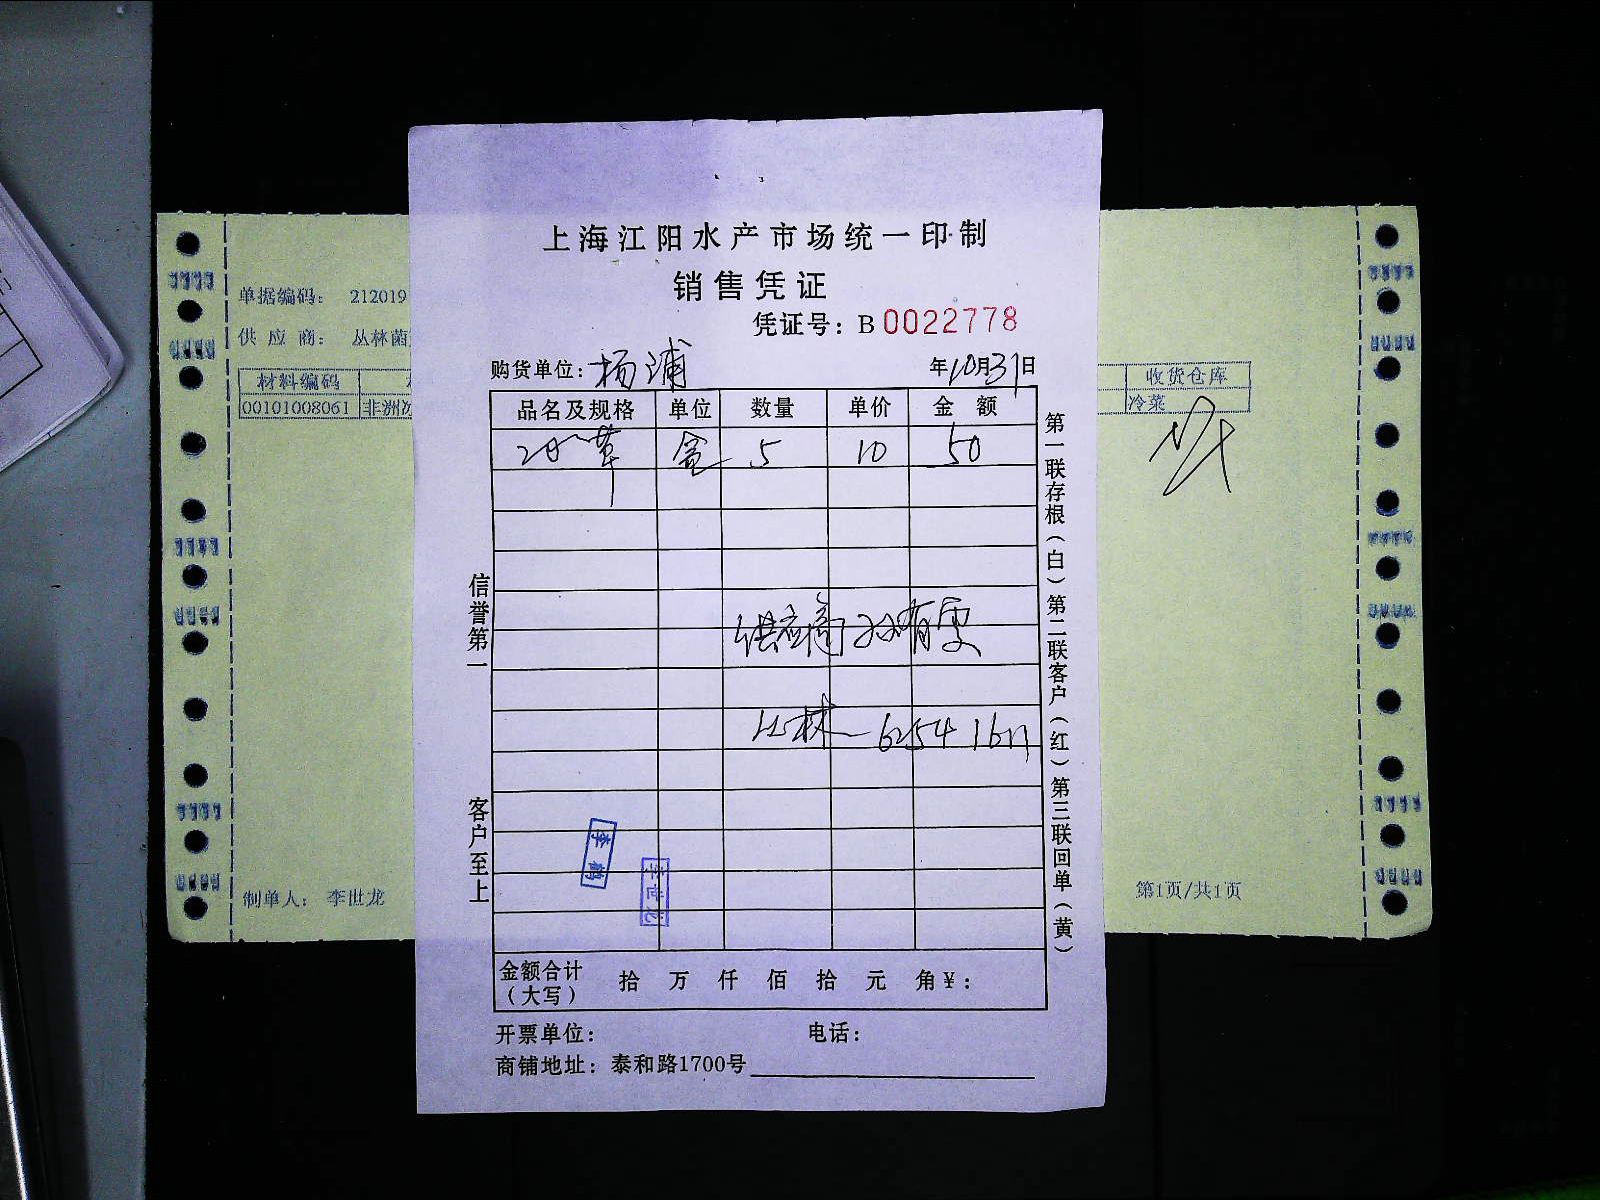 上海江阳水产市场统一印制
销售凭证
凭证号：B 0022778
购货单位：杨浦 年10月31日
品名及规格 单位 数量 单价 金额
冰草 盒 5 10 50
供应商 孙有雯
丛林 6254
信誉第一
客户至上
第一联存根（白）第二联客户（红）第三联回单（黄）
李世龙
金额合计（大写） 拾 万 仟 佰 拾 元 角 ¥：
开票单位： 电话：
商铺地址：泰和路1700号
单据编码： 212019
供应商： 丛林菌
材料编码
00101008061 非洲冰
收货仓库
冷菜
制单人： 李世龙
第1页/共1页